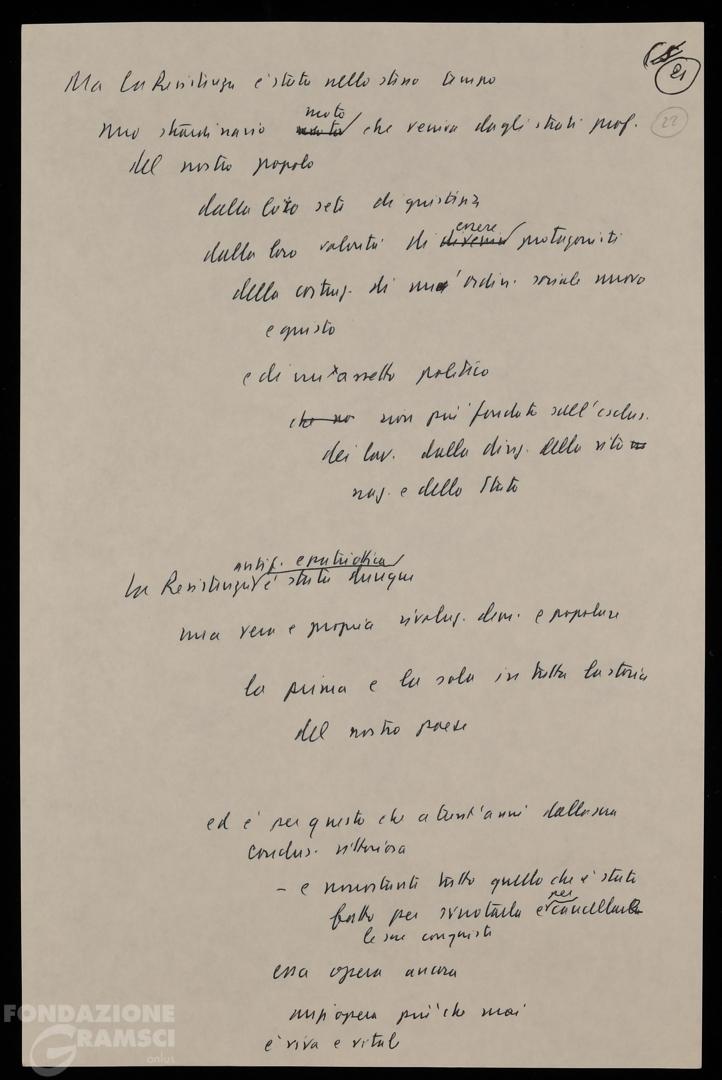 21
22
Ma la Resistenza è stata nello stesso tempo
moto
uno straordinario moto che veniva dagli strati prof.
del nostro popolo
dalla loro sete di giustizia
essere
dalla loro volontà di divenir protagonisti
della costruz. di un ordin. sociale nuovo
e giusto
e di un assetto politico
che no non più fondato sull'esclus.
dei lav. dalla direz. della vita
naz. e dello Stato
antif. e patriottica
La Resistenza è stata dunque
una vera e propria rivoluz. dem. e popolare
la prima e la sola in tutta la storia
del nostro paese
ed è per questo che a trent'anni dalla sua
conclus. vittoriosa
- e nonostante tutto quello che è stato
per
fatto per svuotarla e cancellare
le sue conquiste
essa opera ancora
anzi opera più che mai
è viva e vitale
FONDAZIONE
GRAMSCI
onlus